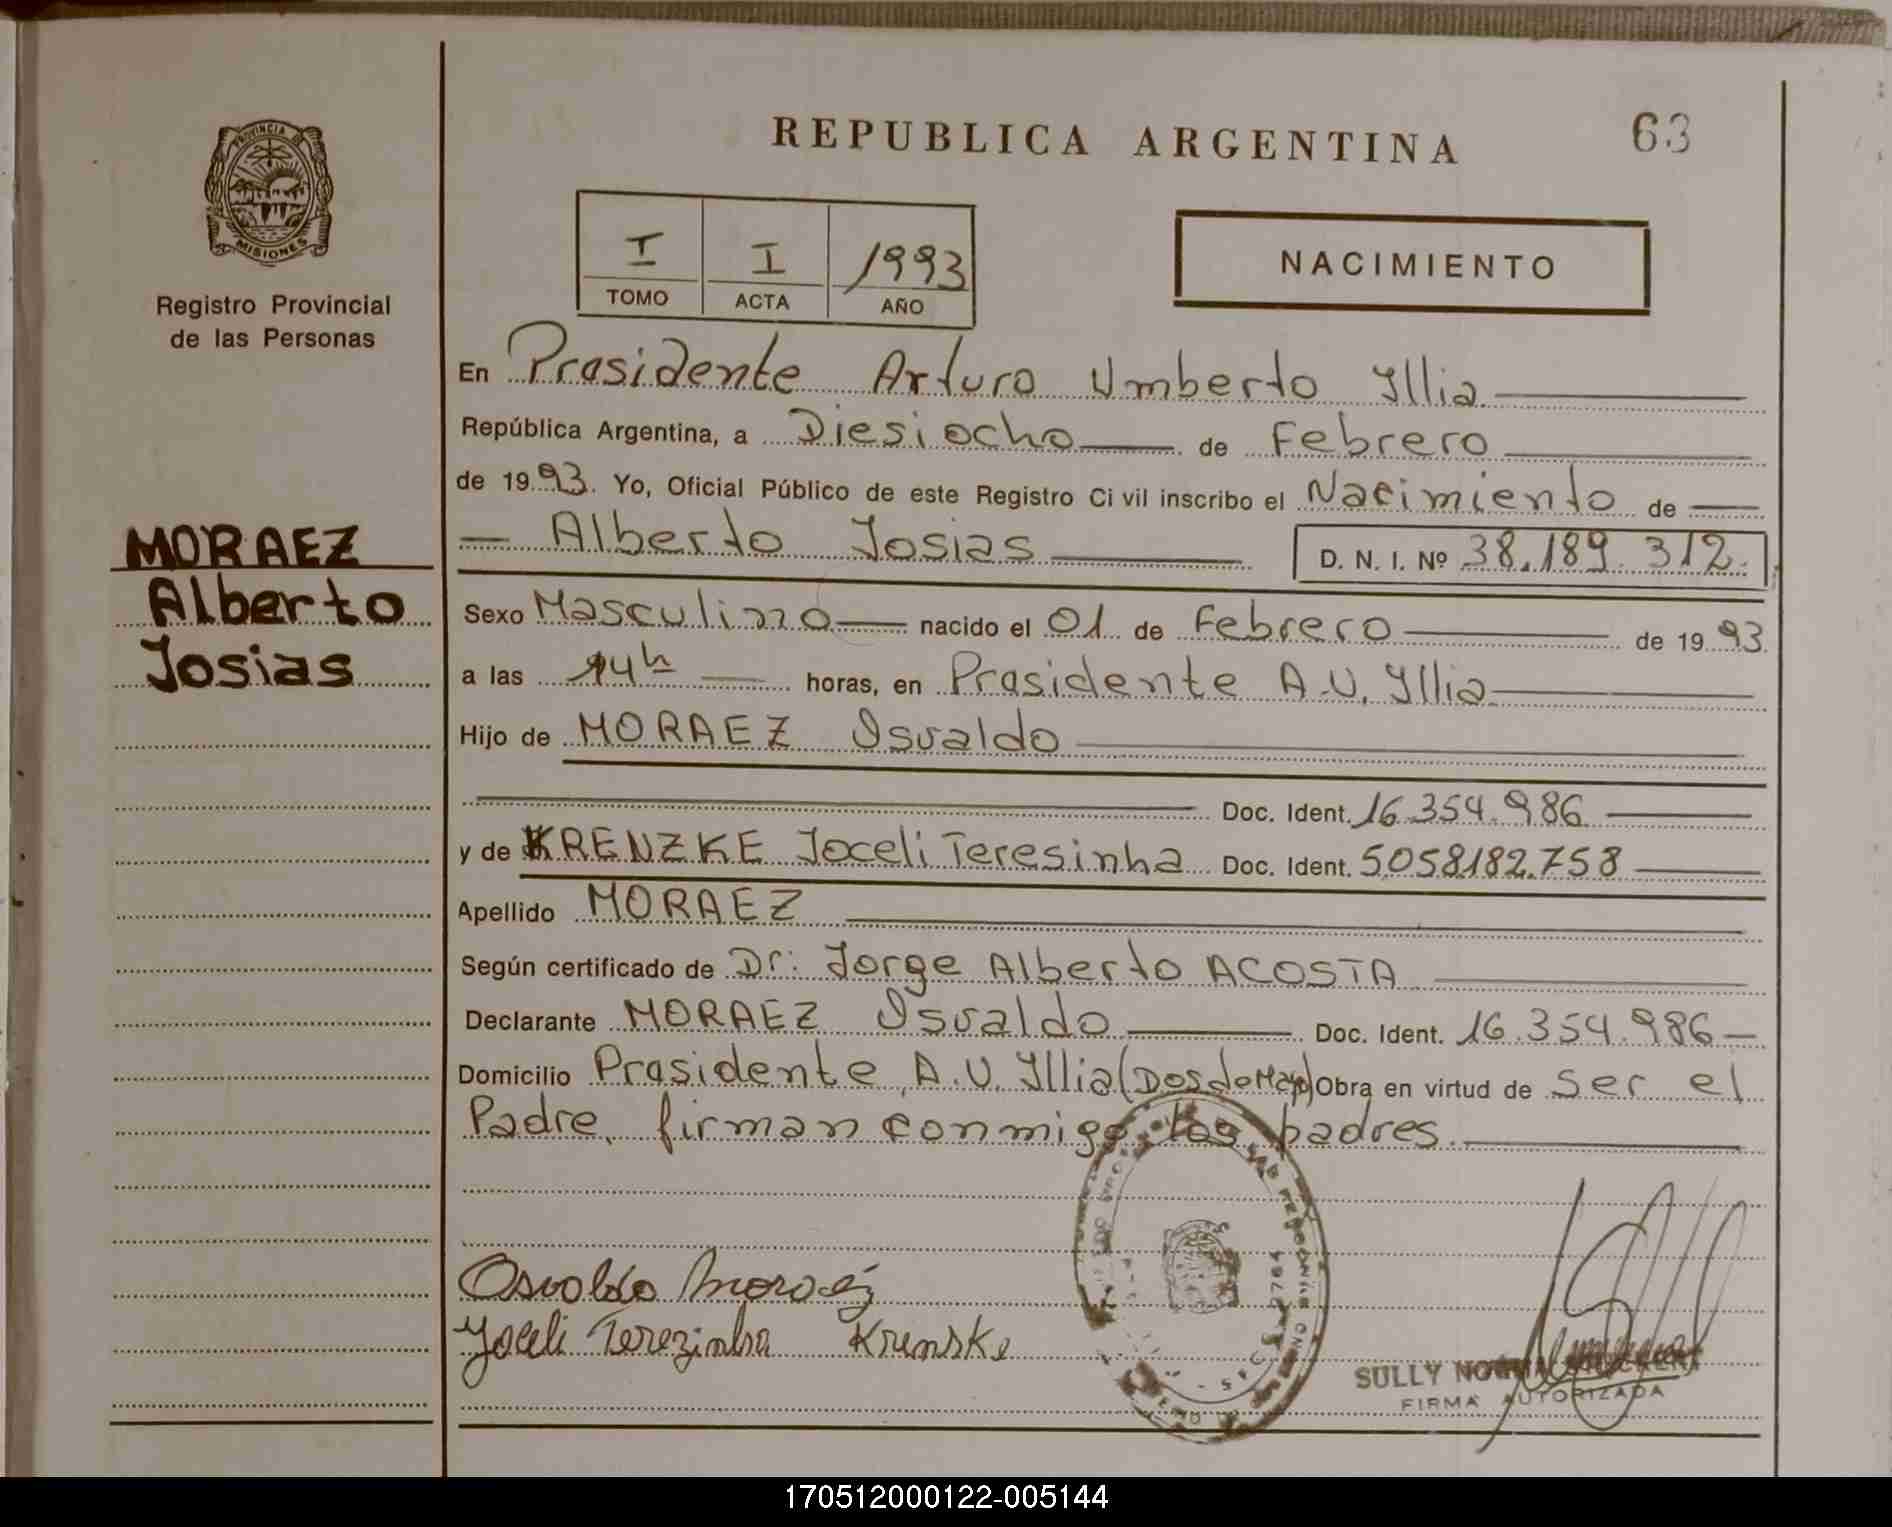 REPUBLICA ARGENTINA
63
PROVINCIA D
MISIONES
Registro Provincial
de las Personas
I I 1993
TOMO ACTA AÑO
NACIMIENTO
MORAEZ
Alberto
Josias
En Presidente Arturo Umberto Yllia
República Argentina, a Diesiocho de Febrero
de 1993. Yo, Oficial Público de este Registro Ci vil inscribo el Nacimiento de
Alberto Josias D. N. I. Nº 38.189.312.
Sexo Masculino nacido el 01 de Febrero de 1993.
a las 14h horas, en Presidente A.U. Yllia
Hijo de MORAEZ Osvaldo
Doc. Ident. 16.354.986
y de KRENZKE Joceli Teresinha Doc. Ident. 5.058.182.758
Apellido MORAEZ
Según certificado de Dr: Jorge Alberto ACOSTA
Declarante MORAEZ Osvaldo Doc. Ident. 16.354.986
Domicilio Presidente A.U. Yllia (Dos de Mayo) Obra en virtud de ser el
Padre, firman conmigo los padres.
Osvaldo Moraéz
Joceli Terezinha Krenske
SULLY
FIRMA AUTORIZADA
170512000122-005144